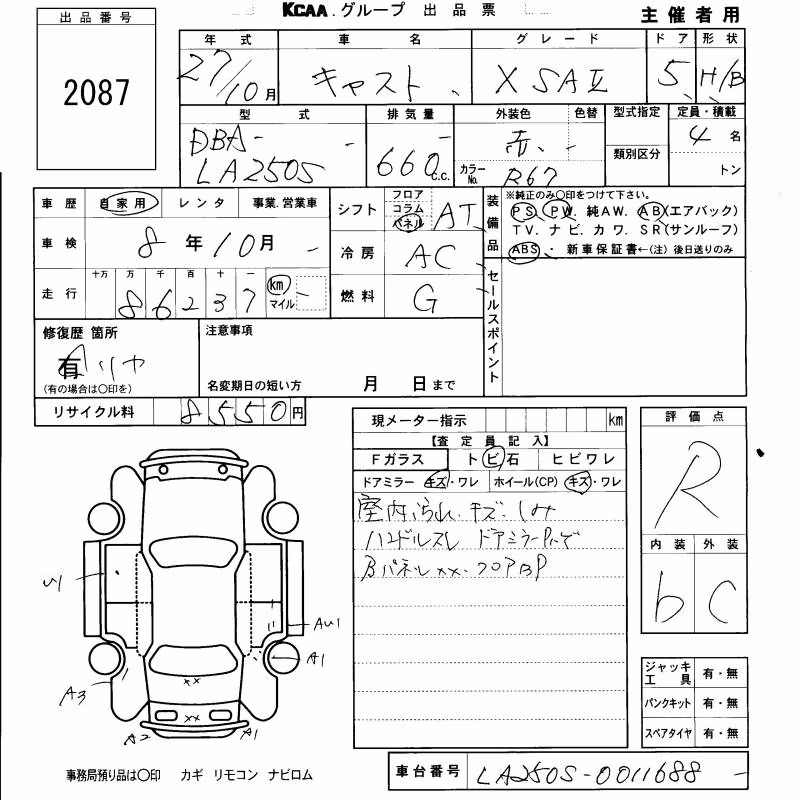 KCAA.グループ 出品票 主催者用
出品番号
2087
年式 車名 グレード ドア 形状
27/10月 キャスト X SAⅡ 5 H/B
型式 排気量 外装色 色替 型式指定 定員・積載
DBA-LA250S 660c.c. 赤 カラーNo. R67 類別区分 4名 トン
車歴 自家用 レンタ 事業.営業車
シフト フロア コラム パネル AT
車検 8年10月
冷房 AC
走行 十万 万 千 百 十 一
86237 km マイル
燃料 G
装備品
※純正のみ〇印をつけて下さい。
PS PW. 純AW. AB(エアバック)
TV. ナビ. カワ. SR(サンルーフ)
ABS・ 新車保証書←(注) 後日送りのみ
セールスポイント
修復歴 箇所
有
(有の場合は〇印を)
注意事項
名変期日の短い方 月 日まで
リサイクル料 8550円
現メーター指示 km
【査定員記入】
Fガラス トビ石 ヒビワレ
ドアミラー キズ・ワレ ホイール(CP) キズ・ワレ
室内汚れ.キズ.しみ
ハンドルスレ ドアミラー
Bパネルxx.フロアBP
評価点
R
内装 外装
b C
U1
AU1
A1
A3
xx
xx
A2 A1
ジャッキ工具 有・無
パンクキット 有・無
スペアタイヤ 有・無
事務局預り品は〇印 カギ リモコン ナビロム
車台番号 LA250S-0011688